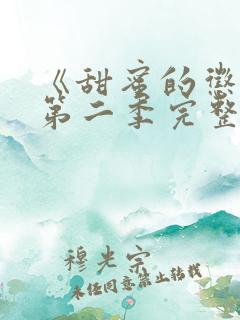 《甜蜜的惩
第二季完整
穆光宗
未经同意禁止转载